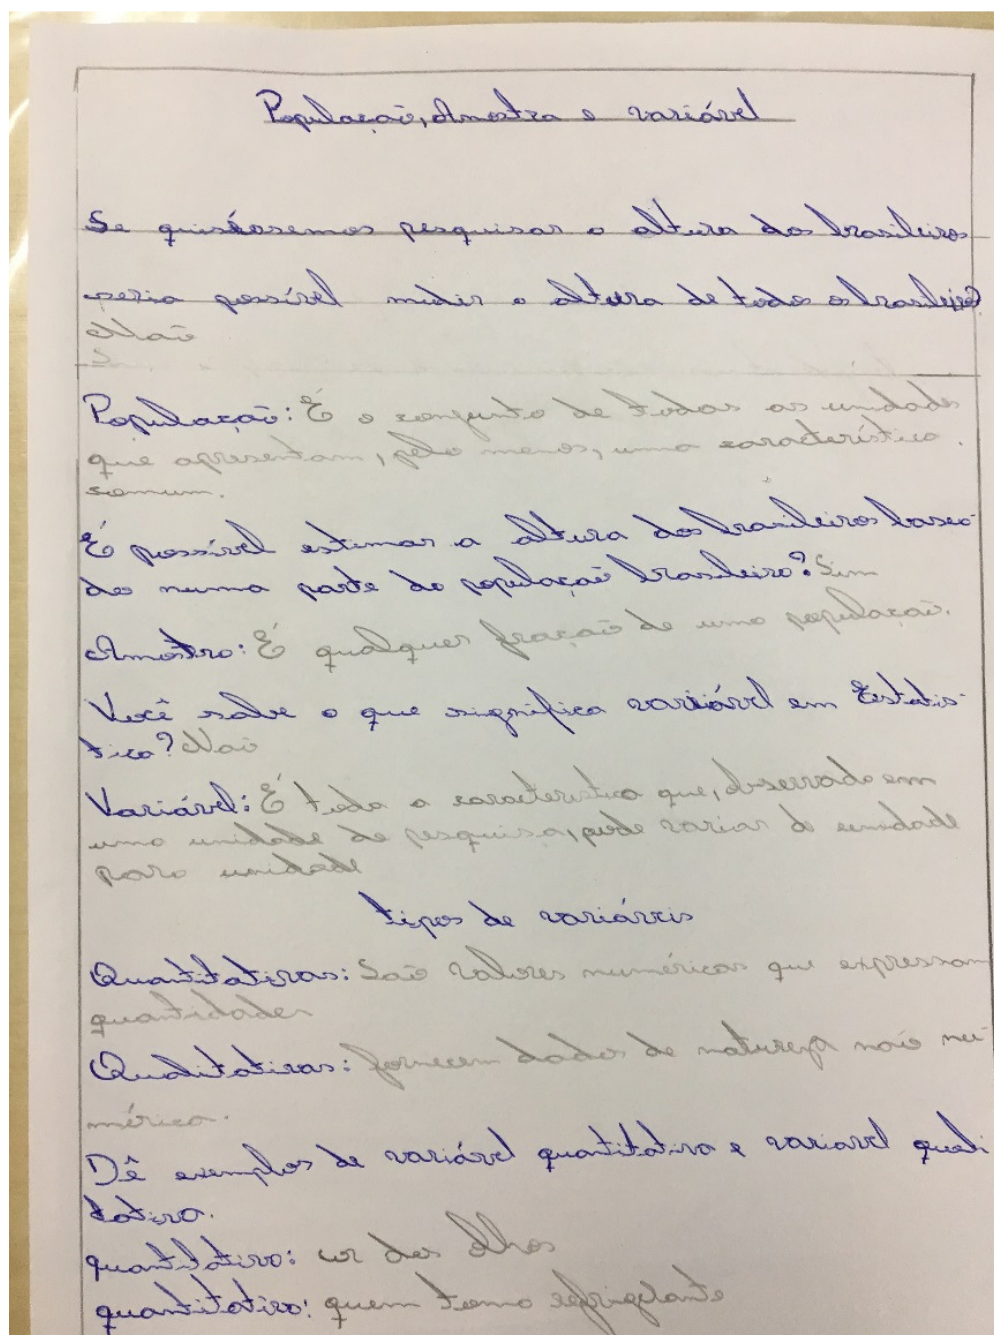 População, Amostra e variável
Se quiséssemos pesquisar a altura dos brasileiros
seria possível medir a altura de todo os brasileiros?
Não
População: É o conjunto de todas as unidades
que apresentam, pelo menos, uma característica
comum.
É possível estimar a altura dos brasileiros basea-
do numa parte da população brasileira? Sim
Amostra: É qualquer fração de uma população.
Você sabe o que significa variável em Estatís-
tica? Não
Variável: É toda a caracteristica que, observada em
uma unidade de pesquisa, pode variar de unidade
para unidade
tipos de variáveis
Quantitativas: São valores numéricos que expressam
quantidades
Qualitativas: fornecem dados de natureza não nu-
mérica.
Dê exemplos de variável quantitativa e variavel quali
tativa.
quantitativo: cor dos olhos
quantitativo: quem toma refrigelante